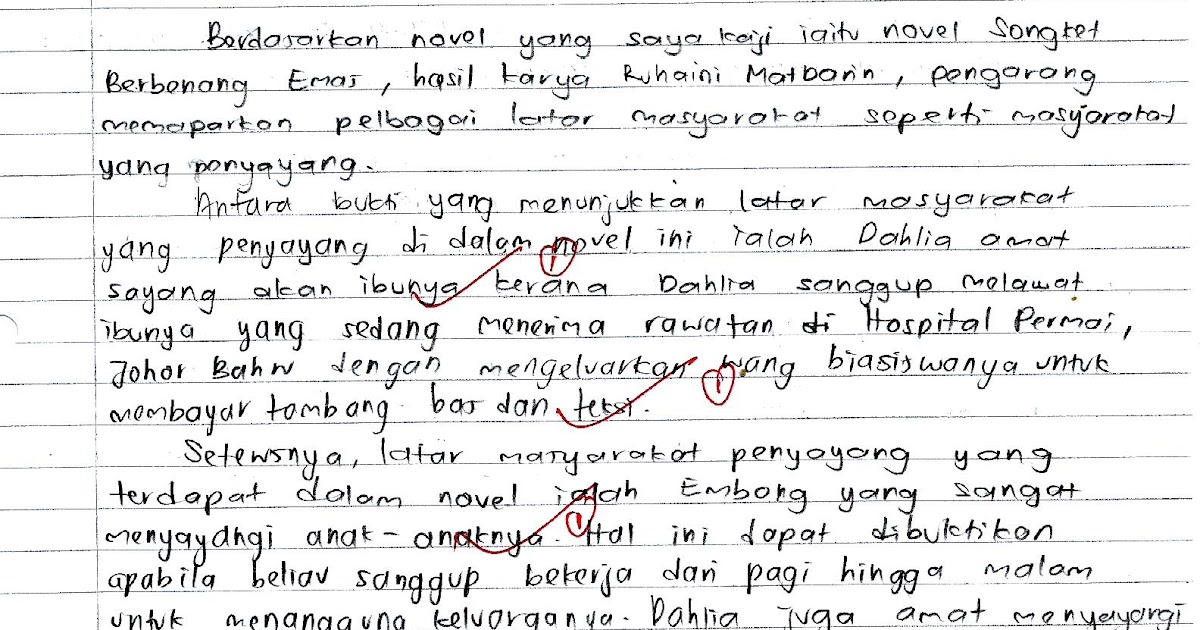 Berdasarkan novel yang saya kaji iaitu novel Songket
Berbenang Emas, hasil karya Ruhaini Matdarin, pengarang
memaparkan pelbagai latar masyarakat seperti masyarakat
yang penyayang.
Antara bukti yang menunjukkan latar masyarakat
yang penyayang di dalam novel ini ialah Dahlia amat
sayang akan ibunya kerana Dahlia sanggup melawat
ibunya yang sedang menerima rawatan di Hospital Permai,
Johor Bahru dengan mengeluarkan wang biasiswanya untuk
membayar tambang bas dan teksi.
Seterusnya, latar masyarakat penyayang yang
terdapat dalam novel ialah Embong yang sangat
menyayangi anak-anaknya. Hal ini dapat dibuktikan
apabila beliau sanggup bekerja dari pagi hingga malam
untuk menanggung keluarganya. Dahlia juga amat menyayangi